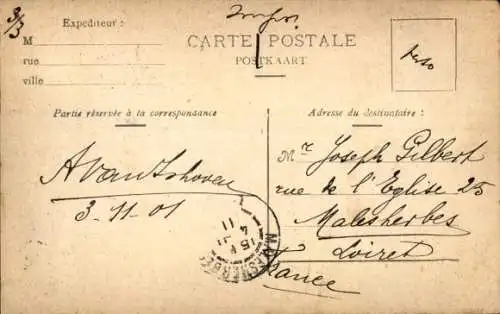 3/3
Expéditeur :
M
rue
ville
CARTE POSTALE
POSTKAART
Partie réservée à la correspondance
Adresse du destinataire :
3-11-01
Mr Joseph Gilbert
rue de l'Eglise 25
Malesherbes
Loiret
France
MALESHERBES
15
4
11